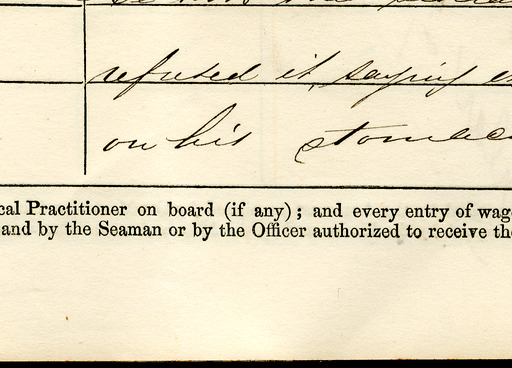 refused it, saying
on his stomac
cal Practitioner on board (if any); and every entry of wag
and by the Seaman or by the Officer authorized to receive the